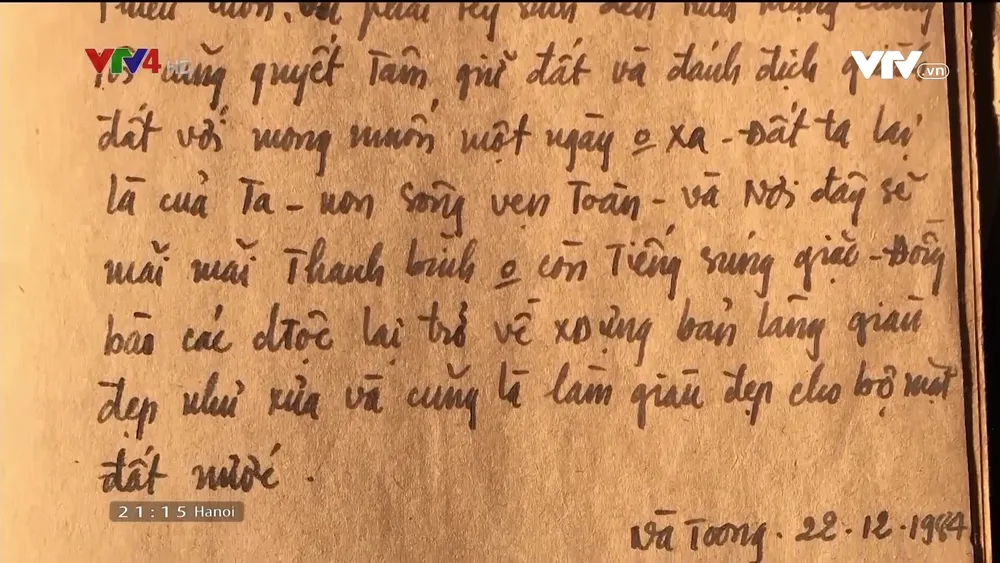 VTV4 HD
VTV.vn
quyết Tâm giữ đất và đánh địch
đất với mong muốn một ngày o xa - Đất ta lại
là của Ta - non sông vẹn Toàn - và Nơi đây sẽ
mãi mãi Thanh bình o còn Tiếng súng giặc - Đồng
bào các dtộc lại trở về xdựng bản làng giàu
đẹp như xưa và cũng là làm giàu đẹp cho bộ mặt
đất nước.
21:15 Hanoi
Và Toong. 22.12.1984